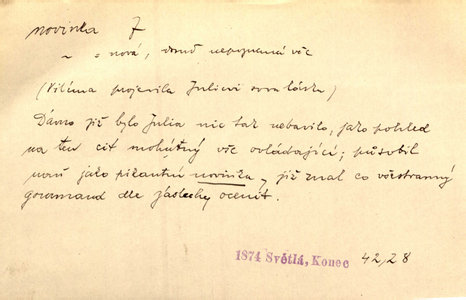 novinka f
~ = nová, dosud nepoznaná věc
(Vilíma projevila Juliovi svou lásku)
Dávno již bylo Julia nic tak nebavilo, jako pohled
na ten cit mohutný vše ovládající; působil
naň jako pikantní novinka, již znal co všestranný
gourmand dle zásluhy ocenit.
1874 Světlá, Konec 42,28